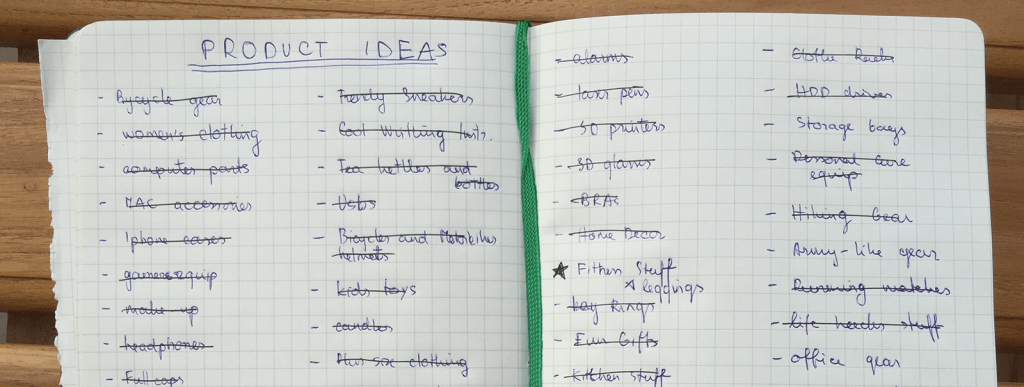 PRODUCT IDEAS
- Bycycle gear
- women's clothing
- computer parts
- MAC accessories
- Iphone cases
- gamers equip
- make-up
- headphones
- Full caps
- Trendy Sneakers
- Cool
- Tea kettles and
bottles
- Usbs
- Bicycles and Motorbikes
helmets
- kids toys
- candles
- Plus size clothing
- alarms
- laser pens
- 3D printers
- 3D glasses
- BRAs
- Home Decor
★ Fithen Stuff
leggings
- key Rings
- Fun Gifts
- Kitchen Stuff
-
- HDD drives
- Storage bags
- Personal Care
equip
- Hiking Gear
- Army-like gear
- Running watches
- life hacks stuff
- office gear